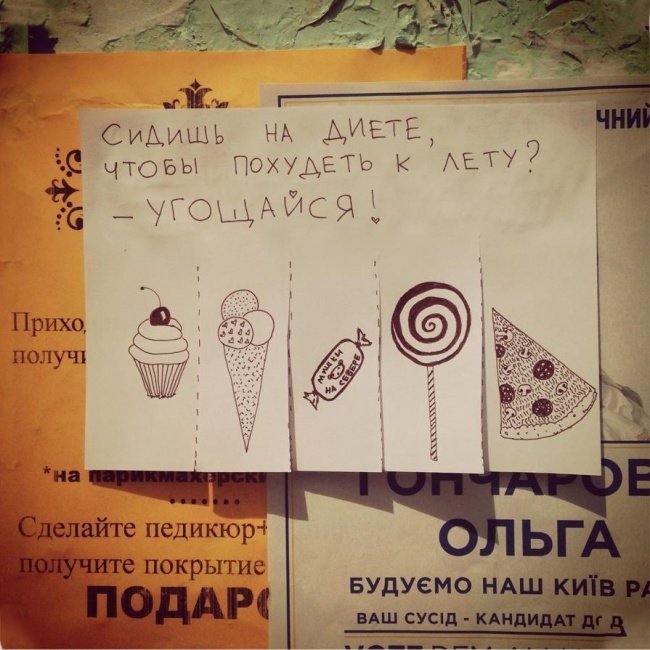 СИДИШЬ НА ДИЕТЕ,
ЧТОБЫ ПОХУДЕТЬ К ЛЕТУ?
– УГОЩАЙСЯ!
МИШКИ
НА СЕВЕРЕ
Прихо
получи
*на парикмахерски
Сделайте педикюр+
получите покрытие
ПОДАРО
ЧНИЙ
ГОНЧАРОВ
ОЛЬГА
БУДУЄМО НАШ КИЇВ РА
ВАШ СУСІД - КАНДИДАТ